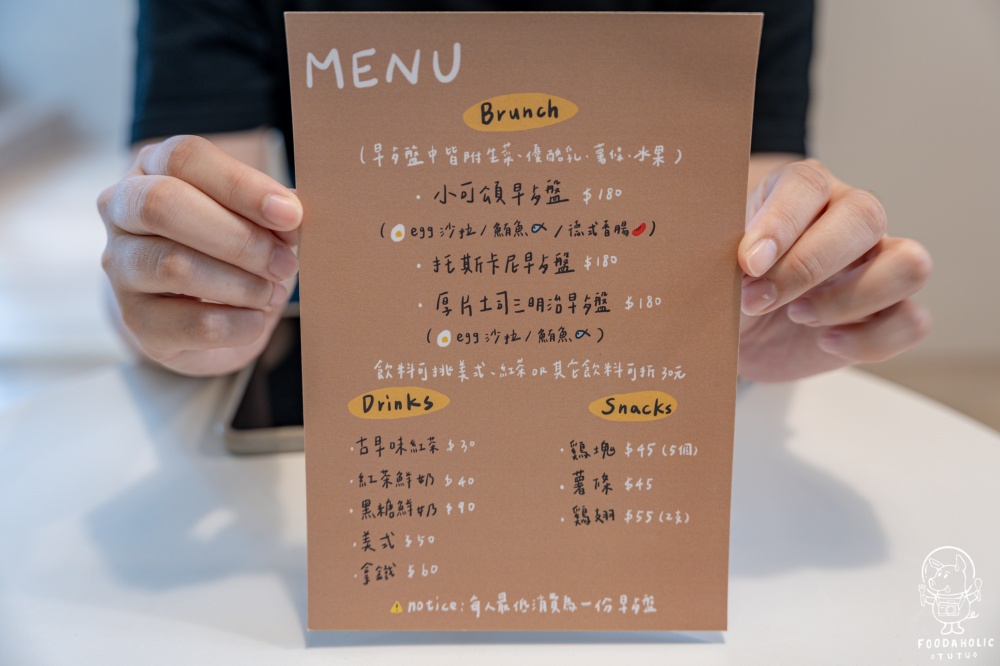 MENU
Brunch
(早午盤中皆附生菜、優酪乳、薯條、水果)
· 小可頌早午盤 $180
(egg沙拉/鮪魚/德式香腸)
· 托斯卡尼早午盤 $180
· 厚片土司三明治早午盤 $180
(egg沙拉/鮪魚)
飲料可挑美式、紅茶 or 其它飲料可折30元
Drinks
· 古早味紅茶 $30
· 紅茶鮮奶 $40
· 黑糖鮮奶 $90
· 美式 $50
· 拿鐵 $60
Snacks
· 鷄塊 $45 (5個)
· 薯條 $45
· 鷄翅 $55 (2支)
notice: 每人最低消費為一份早午盤
FOODAHOLIC
TUTU